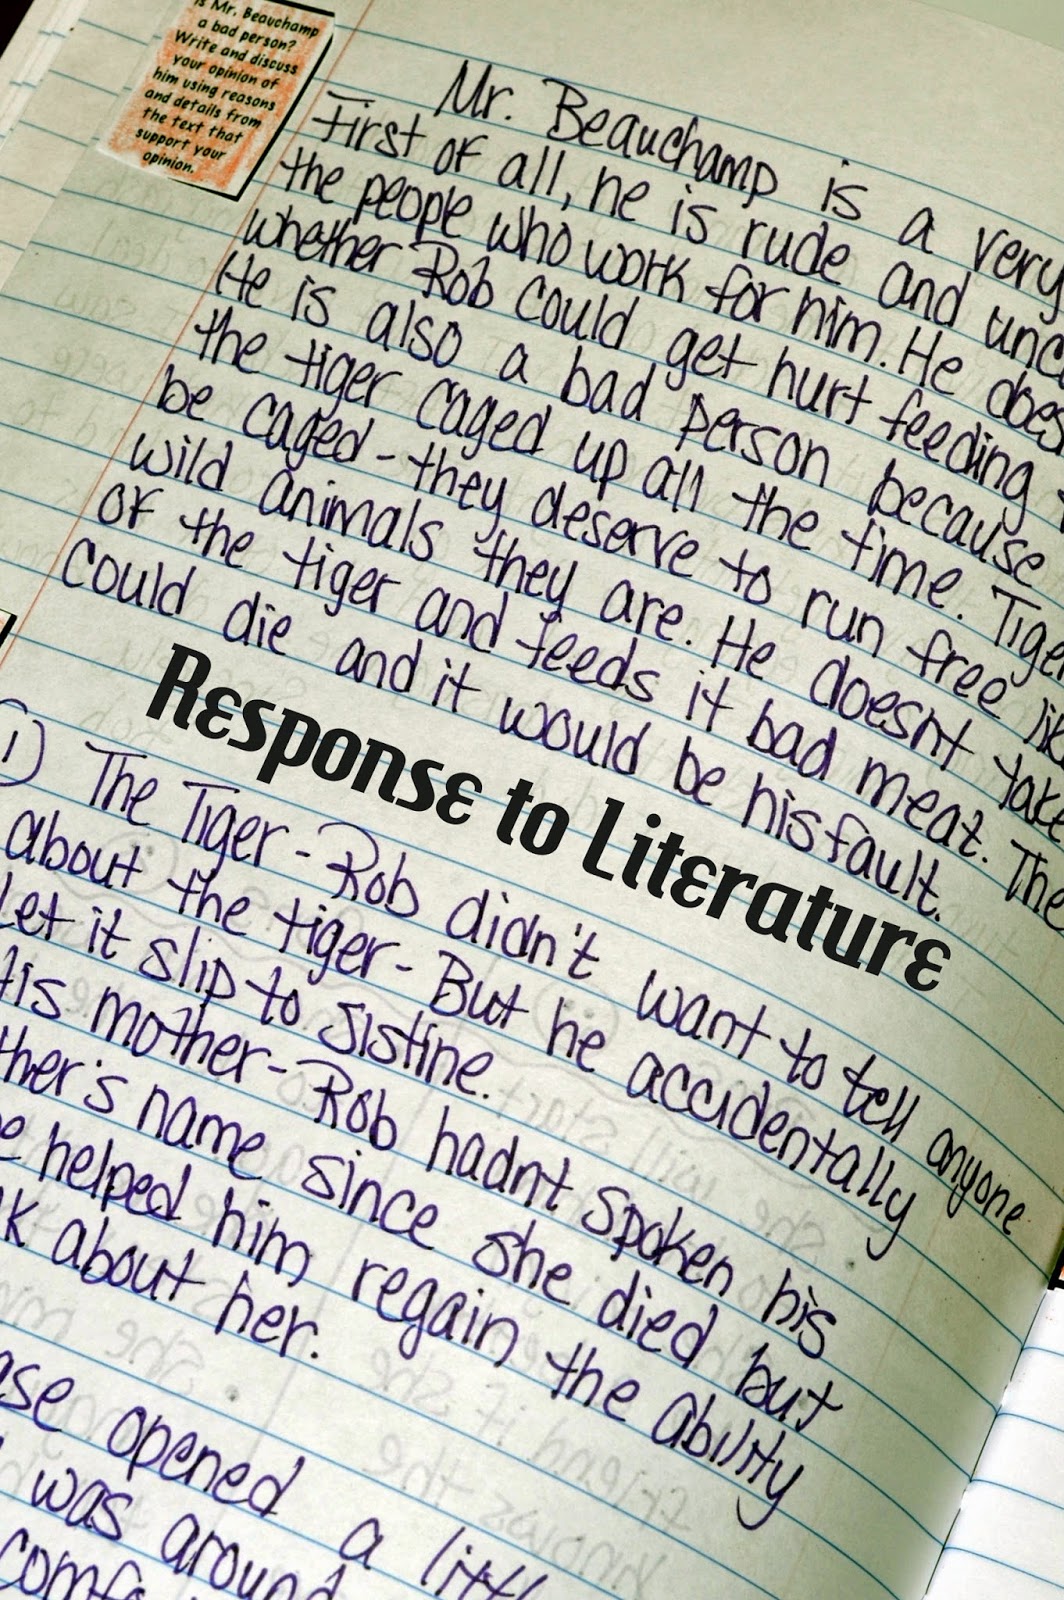 is Mr. Beauchamp
a bad person?
Write and discuss
your opinion of
him using reasons
and details from
the text that
support your
opinion.
Mr. Beauchamp is a very
First of all, he is rude and
the people who work for him. He does
whether Rob could get hurt feeding
He is also a bad person because
the tiger caged up all the time.
be caged - they deserve to run free
wild animals they are. He doesnt take
of the tiger and feeds it bad meat. The
could die and it would be his fault.
Response to Literature
1) The Tiger - Rob didn't want to tell anyone
about the tiger - But he accidentally
let it slip to Sistine.
His mother - Rob hadnt spoken his
name since she died but
helped him regain the ability
about her.
opened a
was around